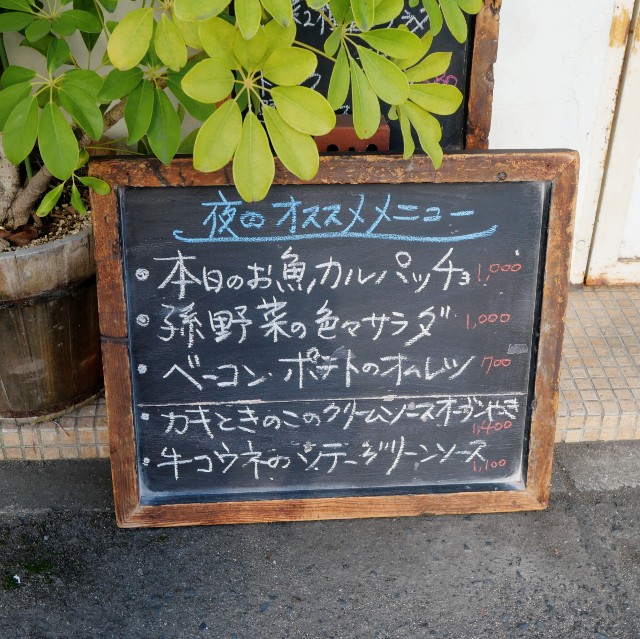 夜のオススメメニュー
・本日のお魚カルパッチョ 1,000
・孫野菜の色々サラダ 1,000
・ベーコン・ポテトのオムレツ 700
・カキときのこのクリームソースオーブンやき 1,400
・牛コウネのソテージグリーンソース 1,100